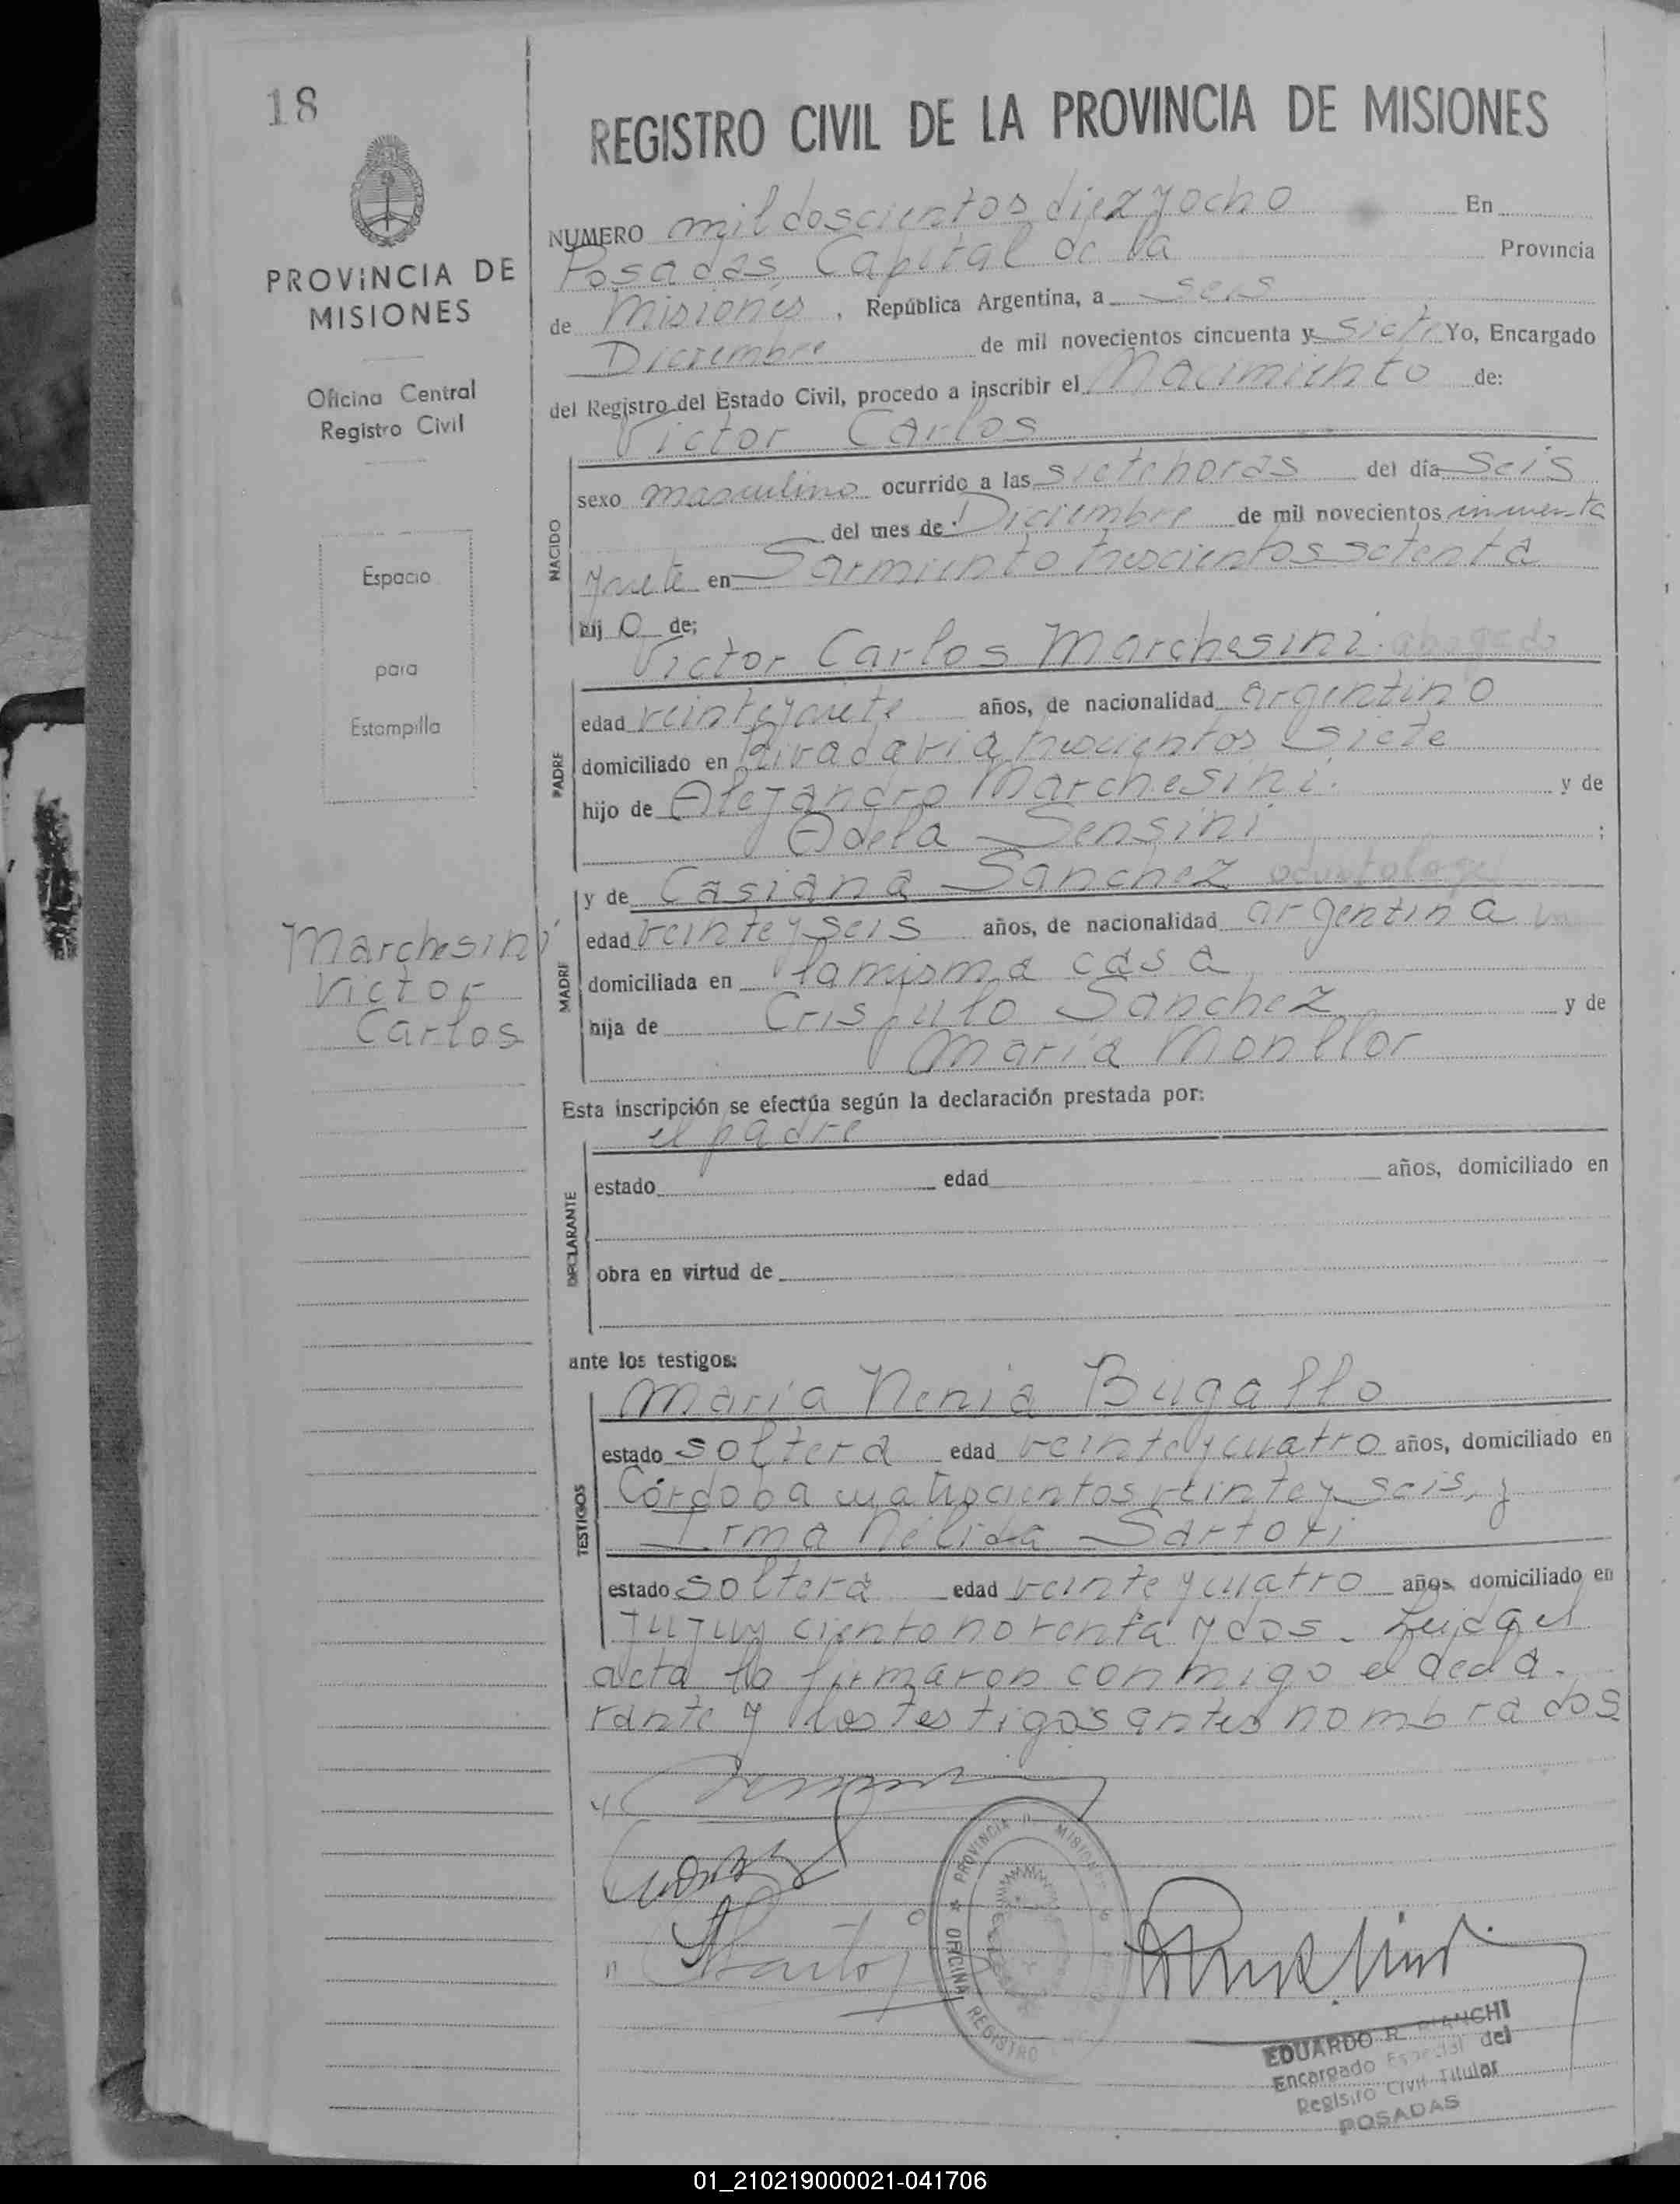 18
PROVINCIA DE
MISIONES
Oficina Central
Registro Civil
Espacio
para
Estampilla
Marchesini
Victor
Carlos
REGISTRO CIVIL DE LA PROVINCIA DE MISIONES
NUMERO mil doscientos diez y ocho En
Posadas, Capital de la Provincia
de Misiones, República Argentina, a seis
Diciembre de mil novecientos cincuenta y siete Yo, Encargado
del Registro del Estado Civil, procedo a inscribir el Nacimiento de:
Victor Carlos
NACIDO
sexo masculino ocurrido a las siete horas del día seis
del mes de Diciembre de mil novecientos cincuenta
y siete en Sarmiento trescientos setenta
hij o de;
Victor Carlos Marchesini. abogado
PADRE
edad veinte y siete años, de nacionalidad argentino
domiciliado en Rivadavia trescientos siete
hijo de Alejandro Marchesini. y de
Adela Sensini ;
MADRE
y de Casiana Sanchez odontologa
edad veinte y seis años, de nacionalidad argentina
domiciliada en la misma casa
hija de Crispulo Sanchez y de
Maria Monllor
Esta inscripción se efectúa según la declaración prestada por:
el padre
DECLARANTE
estado edad años, domiciliado en
obra en virtud de
ante los testigos:
TESTIGOS
Maria Nenia Bugallo
estado soltera edad veinte y cuatro años, domiciliado en
Córdoba cuatrocientos veinte y seis, y
Irma Nélida Sartori
estado soltera edad veinte y cuatro años, domiciliado en
Jujuy ciento noventa y dos. Leida el
acta la firmaron conmigo el decla-
rante y los testigos antes nombrados
PROVINCIA MISIONES
OFICINA REGISTRO
EDUARDO R. BIANCHI
Encargado Especial del
Registro Civil Titular
POSADAS
01_210219000021-041706